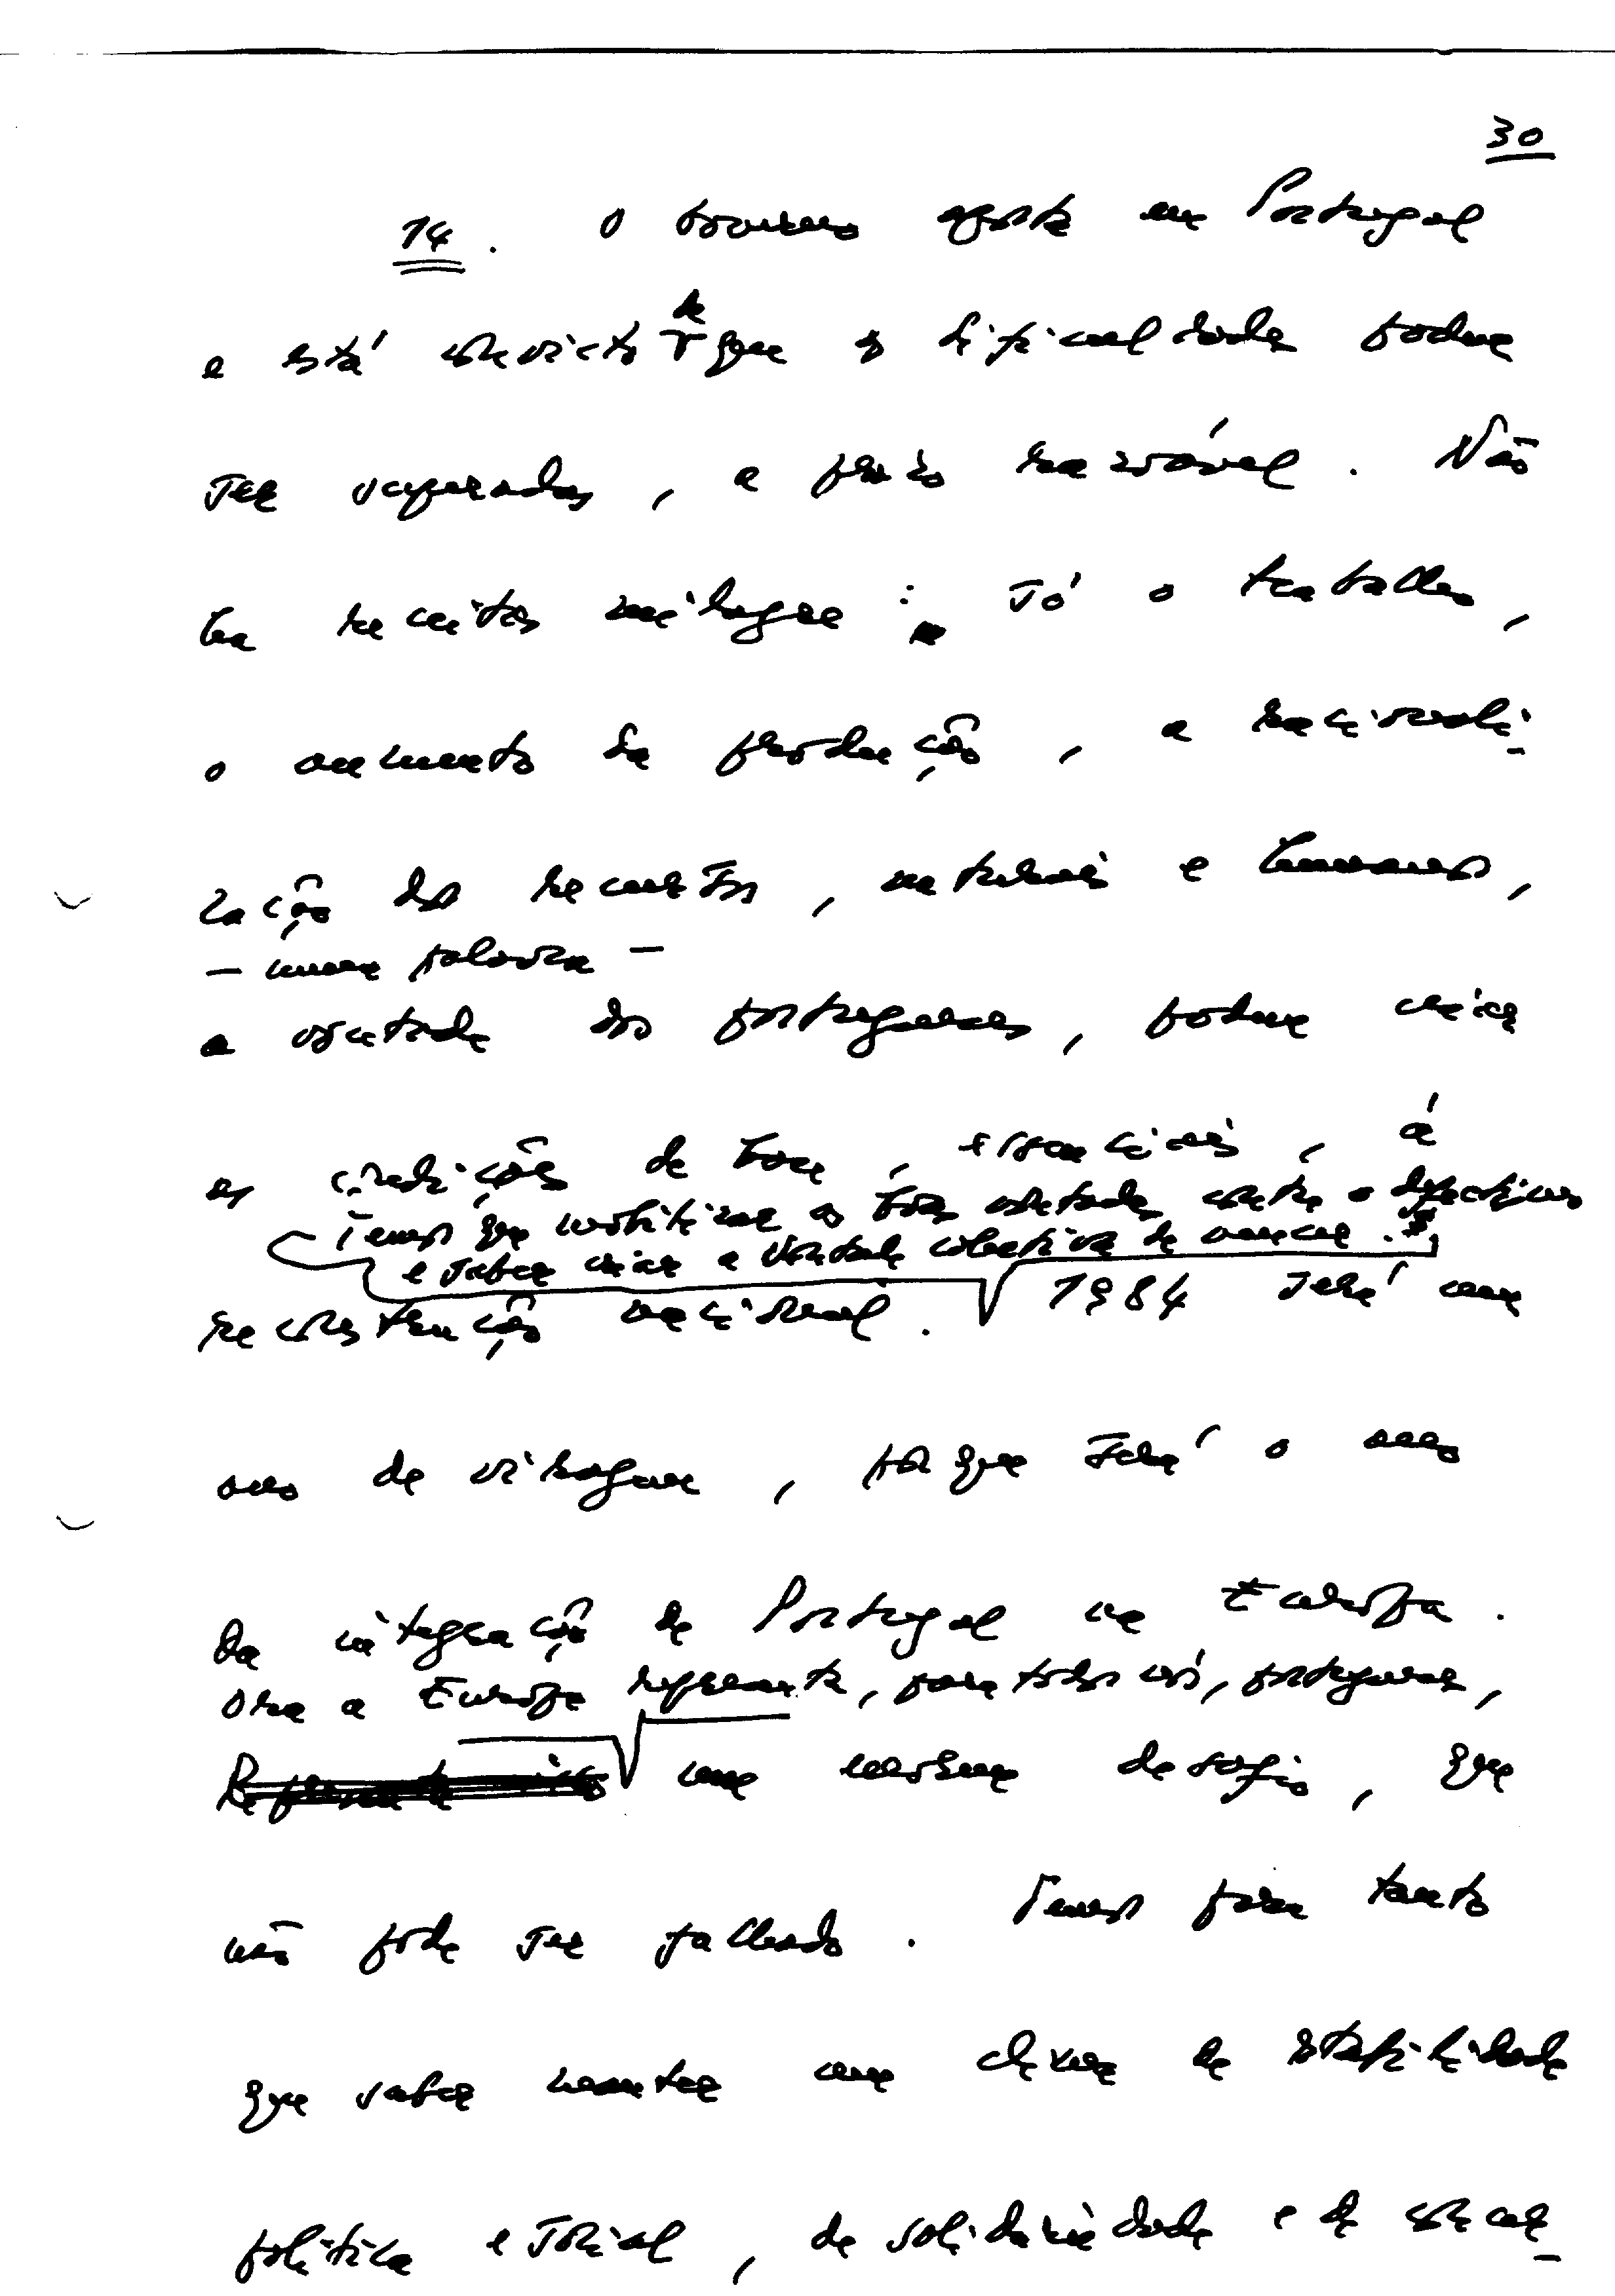 30
14. O Governo aposta em Portugal
e está convicto de que as dificuldades podem
ser superadas, a prazo razoável. Não
ha receitas milagre: só o trabalho,
o aumento da produção, a racionali-
zação dos recursos, naturais e humanos,
- numa palavra -
a vontade dos portugueses, podem criar
as condições de base, essenciais, á
Temos que mobilizar as boas vontades contra o
e saber criar a vontade colectiva de vencer.
reconstrução nacional. 1984 será um
ano de viragem, porque será o ano
da integração de Portugal na Europa.
Ora a Europa representa, para todos nós, portugueses,
Representa um enorme desafio, que
não pode ser falhado. Temos para tanto
que saber manter um clima de estabilidade
politica e social, de solidariedade e de concer-